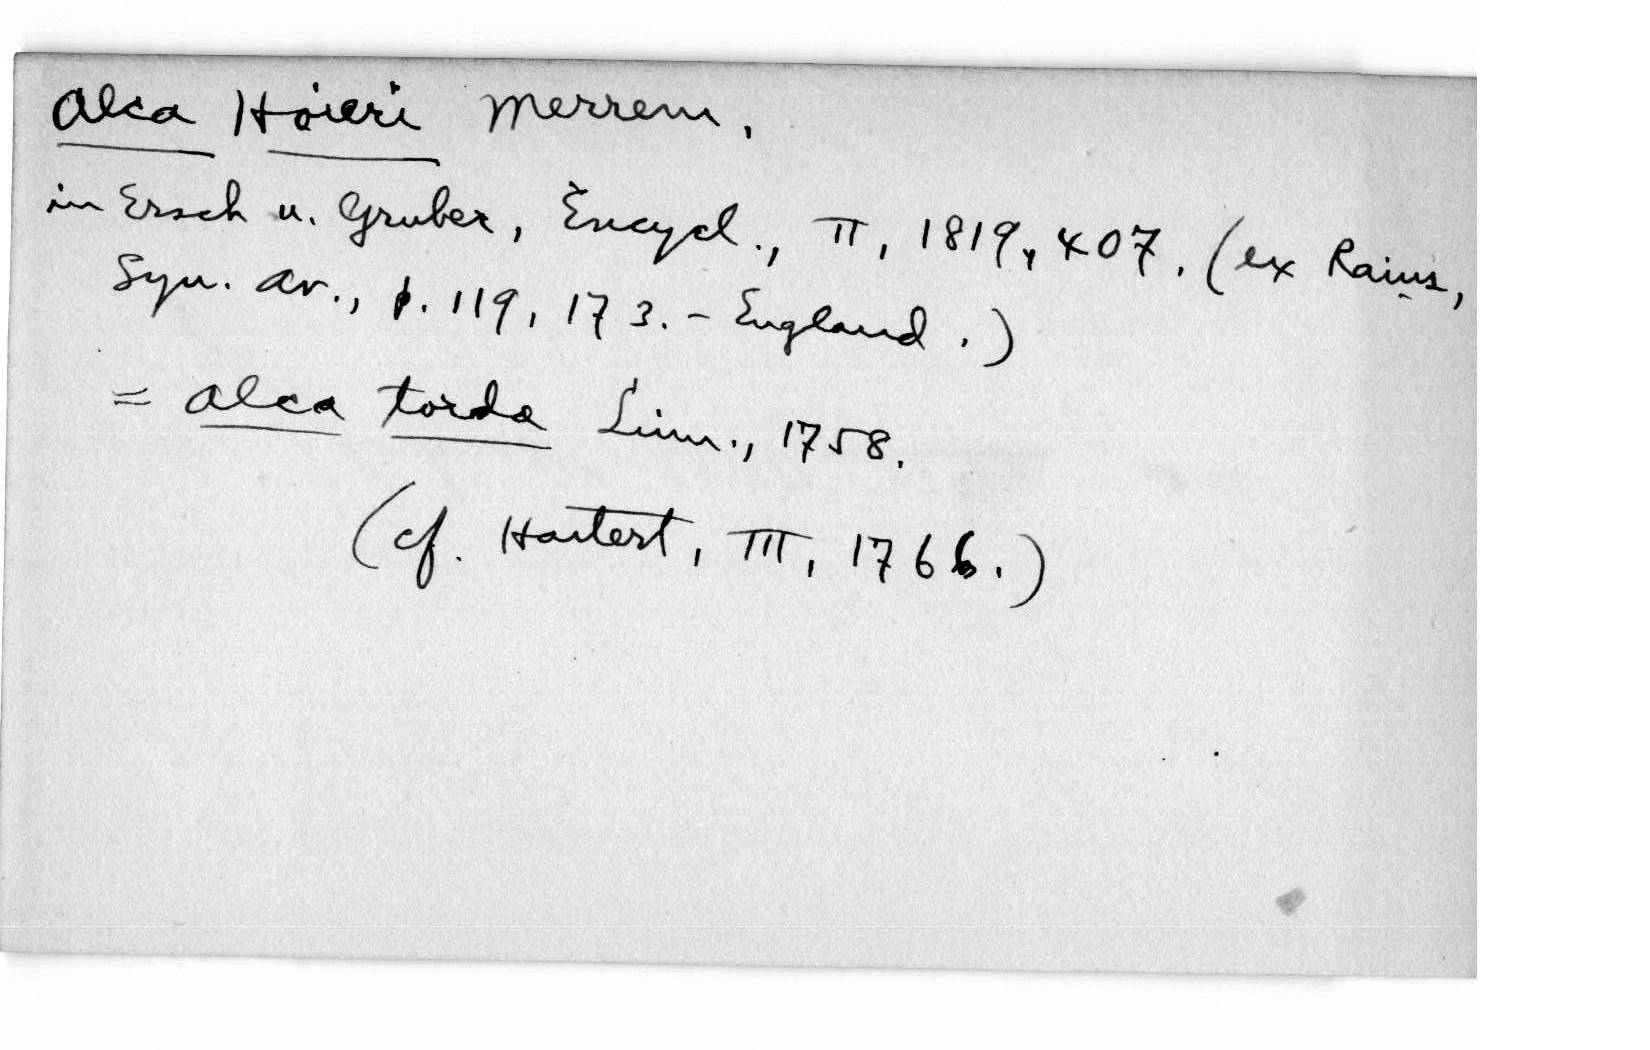 Alca Hóieri Merrem.
in Ersch u. Gruber, Encycl., II, 1819, 407. (ex Raius,
Syn. Av., p. 119, 173. - England.)
= Alca torda Linn., 1758.
(cf. Hartert, III, 1766.)